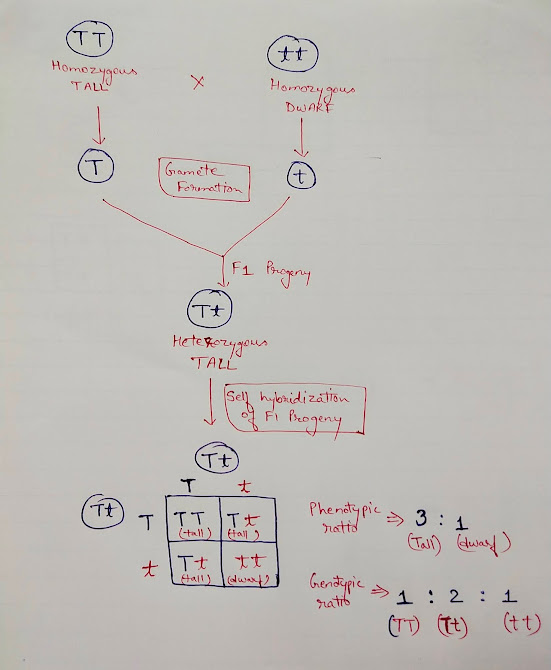 TT
tt
Homozygous
TALL
X
Homozygous
DWARF
T
Gamete
Formation
t
F1 Progeny
Tt
Heterozygous
TALL
Self hybridization
of F1 Progeny
Tt
T t
Tt
T TT Tt
(tall) (tall)
t Tt tt
(tall) (dwarf)
Phenotypic
ratio ⇒ 3 : 1
(Tall) (dwarf)
Gentypic
ratio ⇒ 1 : 2 : 1
(TT) (Tt) (tt)